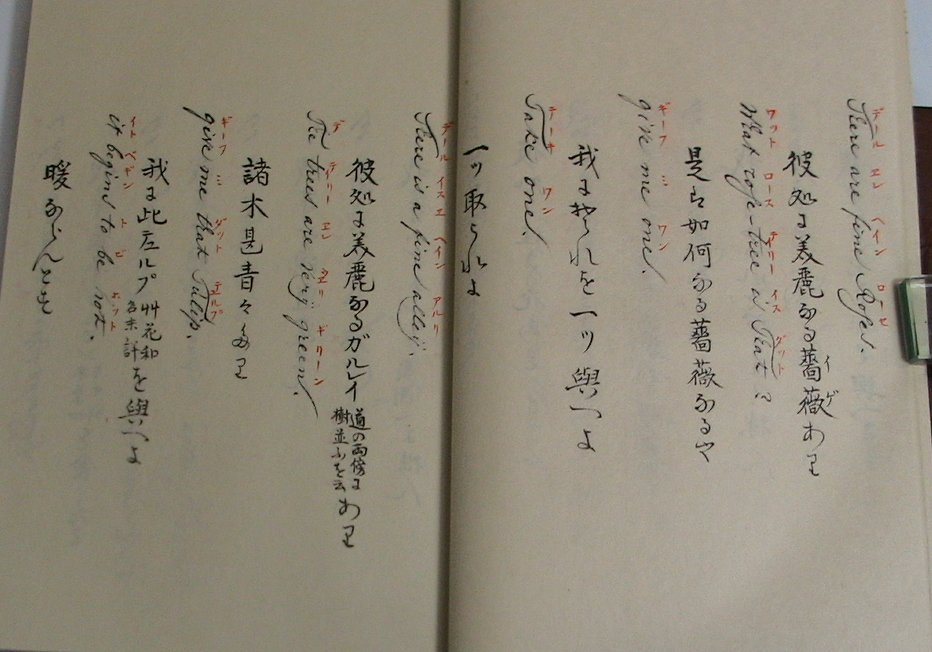 デール エレ ヘイン ローセ
There are fine Roses.
彼処に美麗なる薔薇あり
イゲ
ワット ロース テイリー イス ダット
What rose-tree is that
是は如何なる薔薇なるや
ギーフ ミ ワン
give me one.
我にそれを一ツ與へよ
テーキ ワン
Take one.
一ツ取られよ
デール イス エ ヘイン アルリ
There is a fine alleij.
彼処に美麗なるガルレイ道の両傍に樹並ふを云あり
デ テリー エレ ギリーン
The trees are verij green.
諸木甚青々たり
ギーフ ミ ダット テルプ
give me that Tulip.
我に此テルプ艸花和名未詳を與へよ
イト ベギン ト ビ ホット
it begins to be hot.
暖ならんとす